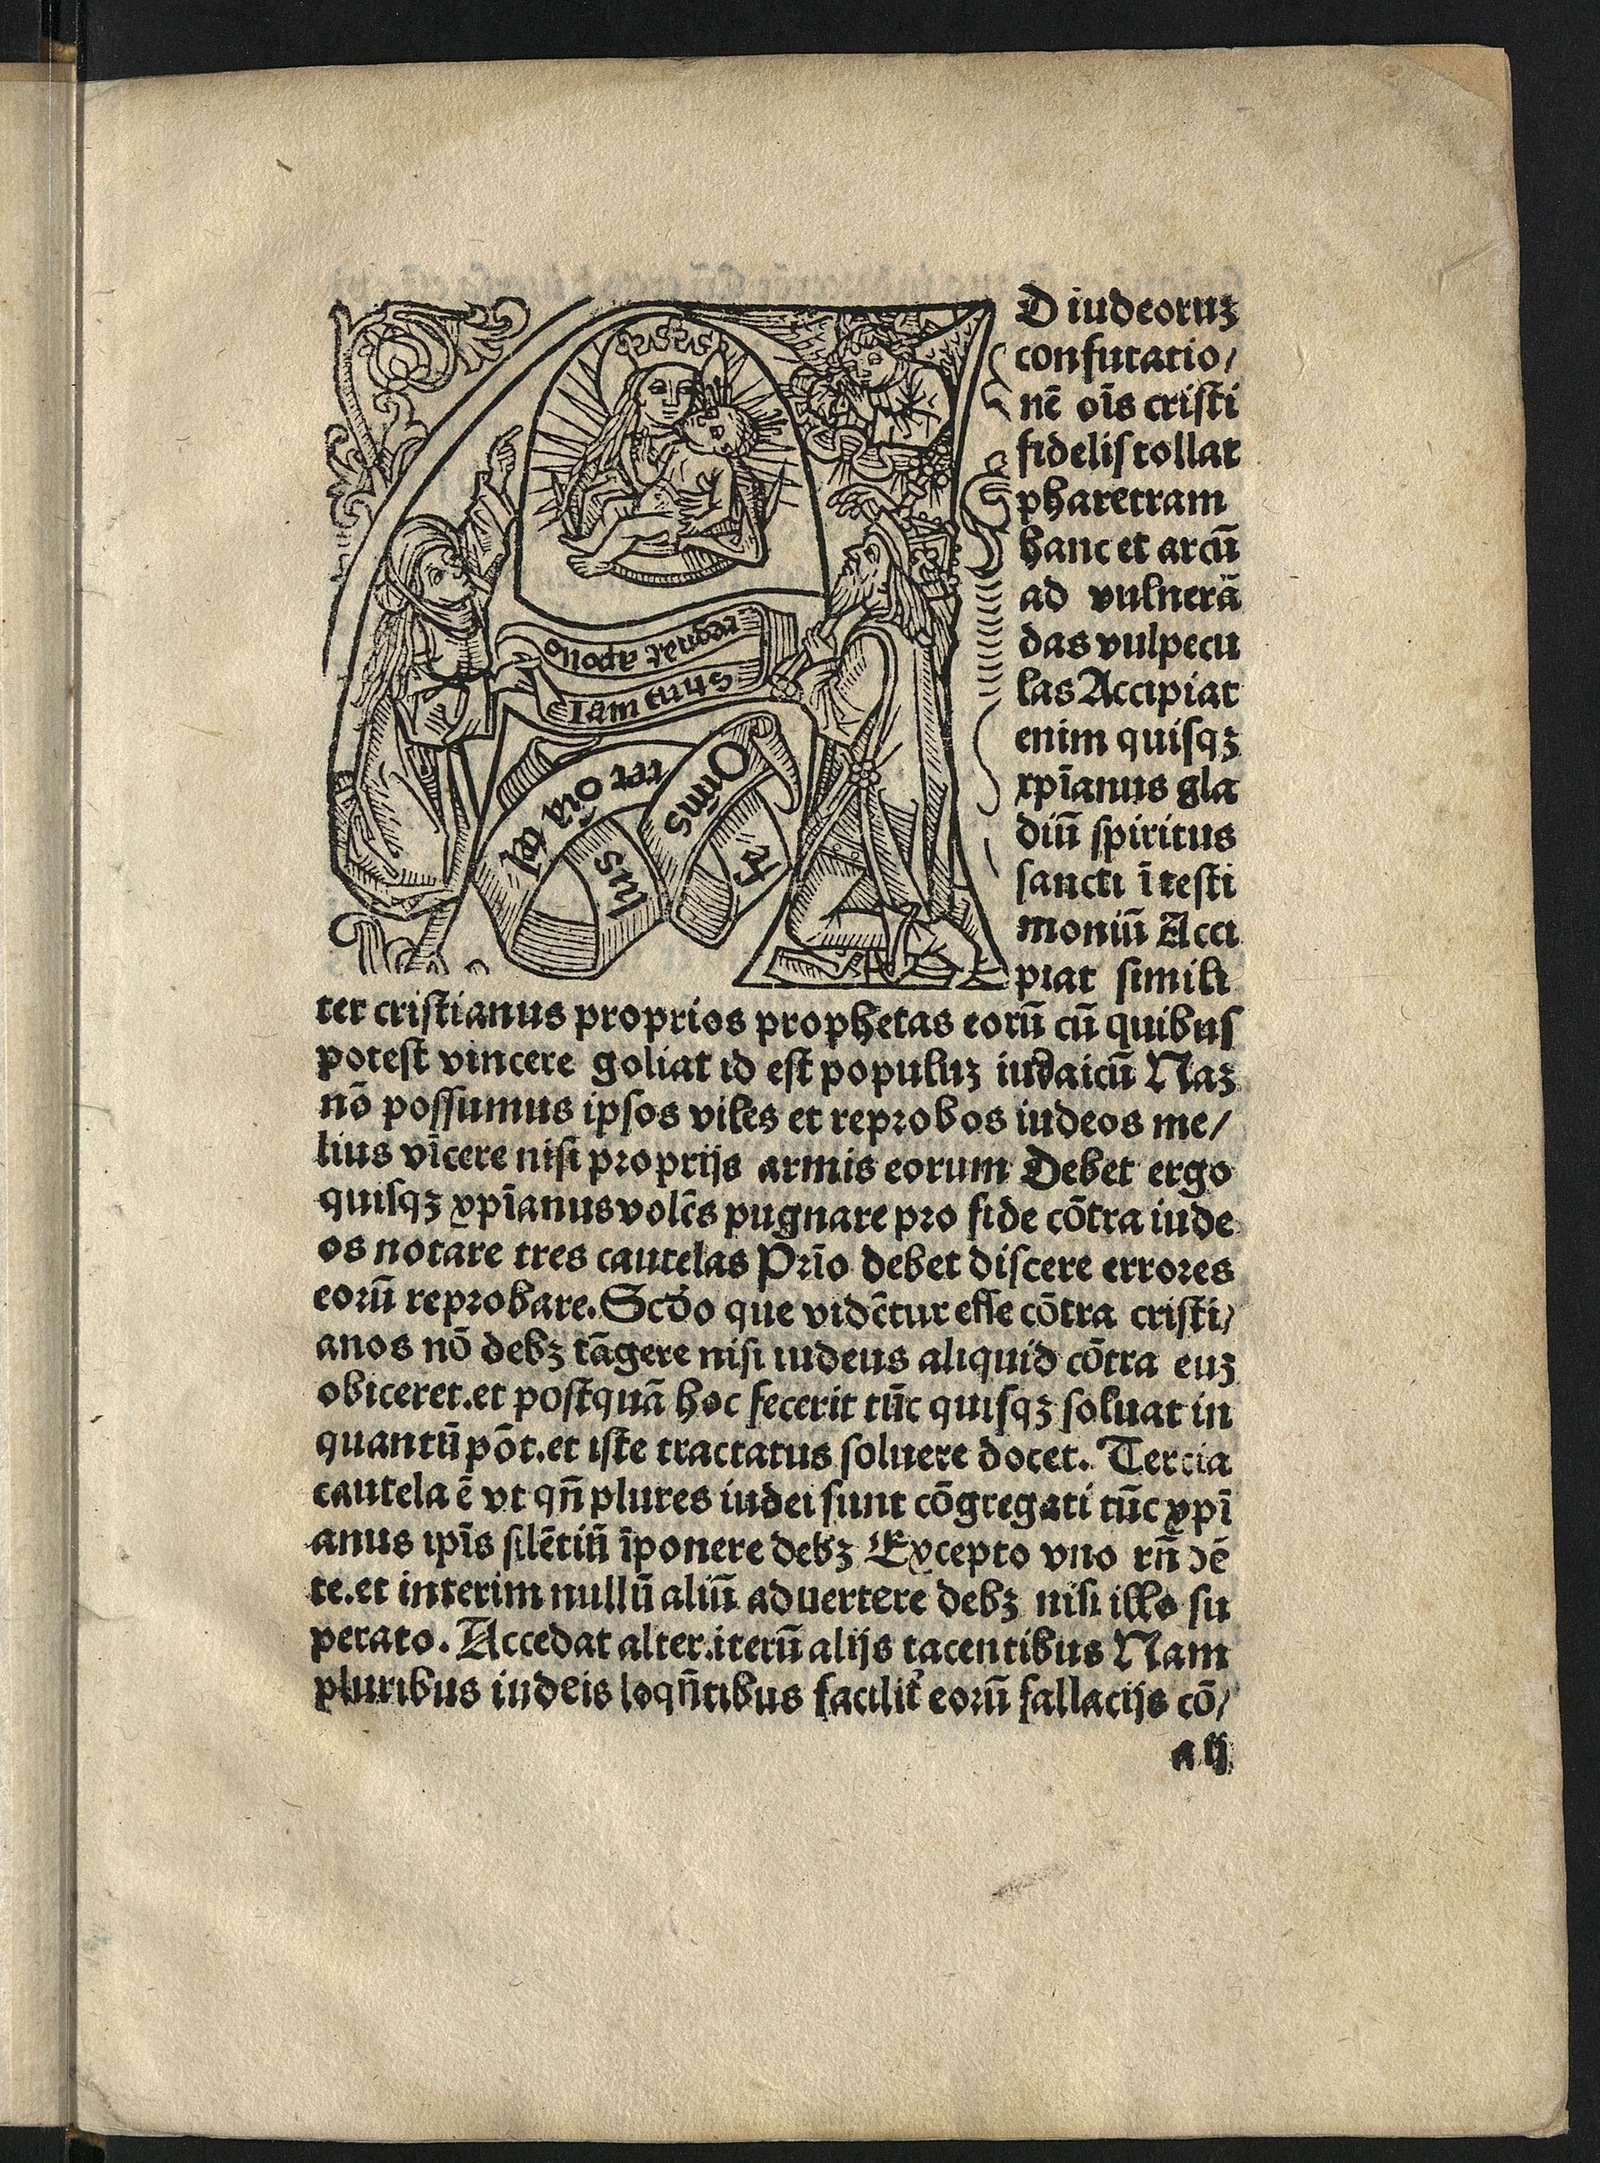 D iudeoruꝫ
confutatio/
nē oīs cristi
fidelis tollat
pharetram
hanc et arcū
ad vulnerā
das vulpecu
las Accipiat
enim quisqꝫ
xpīanus gla
diū spiritus
sancti ī testi
moniū Acci
piat simili
regnet apollo
Iam tuus
ter cristianus proprios prophetas eorū cū quibus
potest vincere goliat id est populuꝫ iudaicū Naꝫ
nō possumus ipsos viles et reprobos iudeos me/
lius vīcere nisi proprijs armis eorum Debet ergo
quisqꝫ xpīanus volēs pugnare pro fide cōtra iude
os notare tres cautelas Prīo debet discere errores
eorū reprobare. Scdo que vidētur esse cōtra cristi/
anos nō debꝫ tāgere nisi iudeus aliquid cōtra euꝫ
obiceret. et postquā hoc fecerit tūc quisqꝫ soluat in
quantū pōt. et iste tractatus soluere docet. Tercia
cautela ē vt qn̄ plures iudei sunt cōgregati tūc xpī
anus ipīs silētiū īponere debꝫ Excepto vno rn̄dē
te. et interim nullū aliū aduertere debꝫ nisi illo su
perato. Accedat alter. iterū alijs tacentibus Nam
pluribus iudeis loqn̄tibus facilit̓ eorū fallacijs cō/
a ij